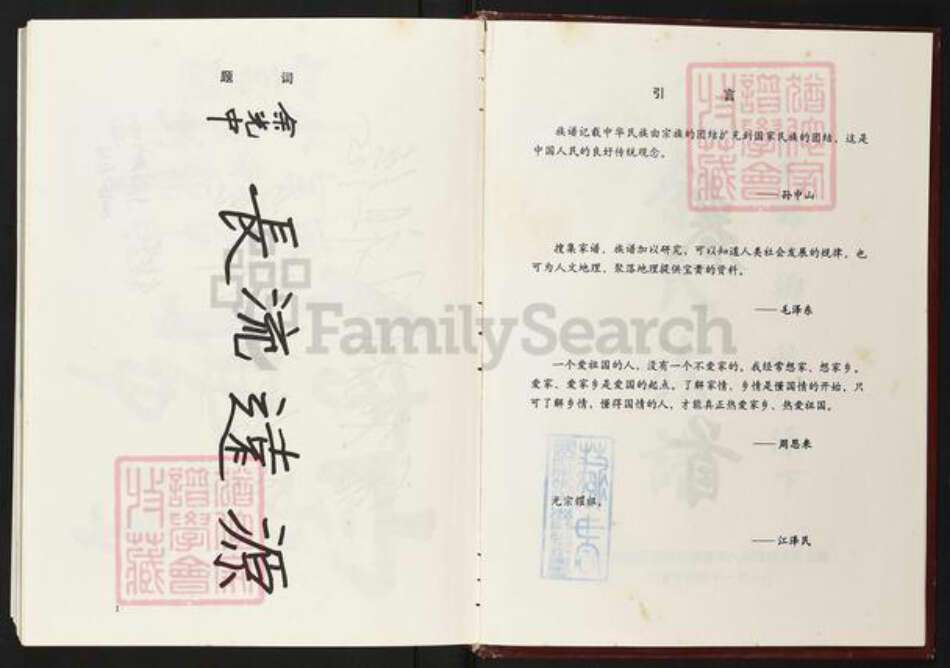 题 词
源遠流長
余光中
猶他家
譜學會
收藏
1
引 言
族谱记载中华民族由宗族的团结扩充到国家民族的团结，这是
中国人民的良好传统观念。
——孙中山
搜集家谱、族谱加以研究，可以知道人类社会发展的规律，也
可为人文地理、聚落地理提供宝贵的资料。
——毛泽东
一个爱祖国的人，没有一个不爱家的。我经常想家、想家乡。
爱家、爱家乡是爱国的起点。了解家情、乡情是懂国情的开始，只
可了解乡情、懂得国情的人，才能真正热爱家乡、热爱祖国。
——周恩来
光宗耀祖。
——江泽民
猶他家
譜學會
收藏
FamilySearch